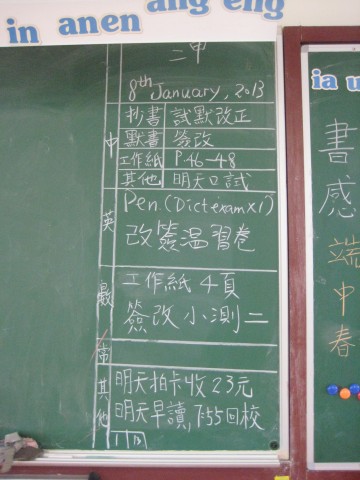 in anen ang eng
ia u
二甲
8th January, 2013
中
抄書 試默改正
默書 簽改
工作紙 P.46-48
其他 明天口試
英
Pen.(Dict exam×1)
改簽温習卷
工作紙 4頁
簽改小測二
常
其他
明天拍卡收23元
明天早讀,7:55回校
書感端中春